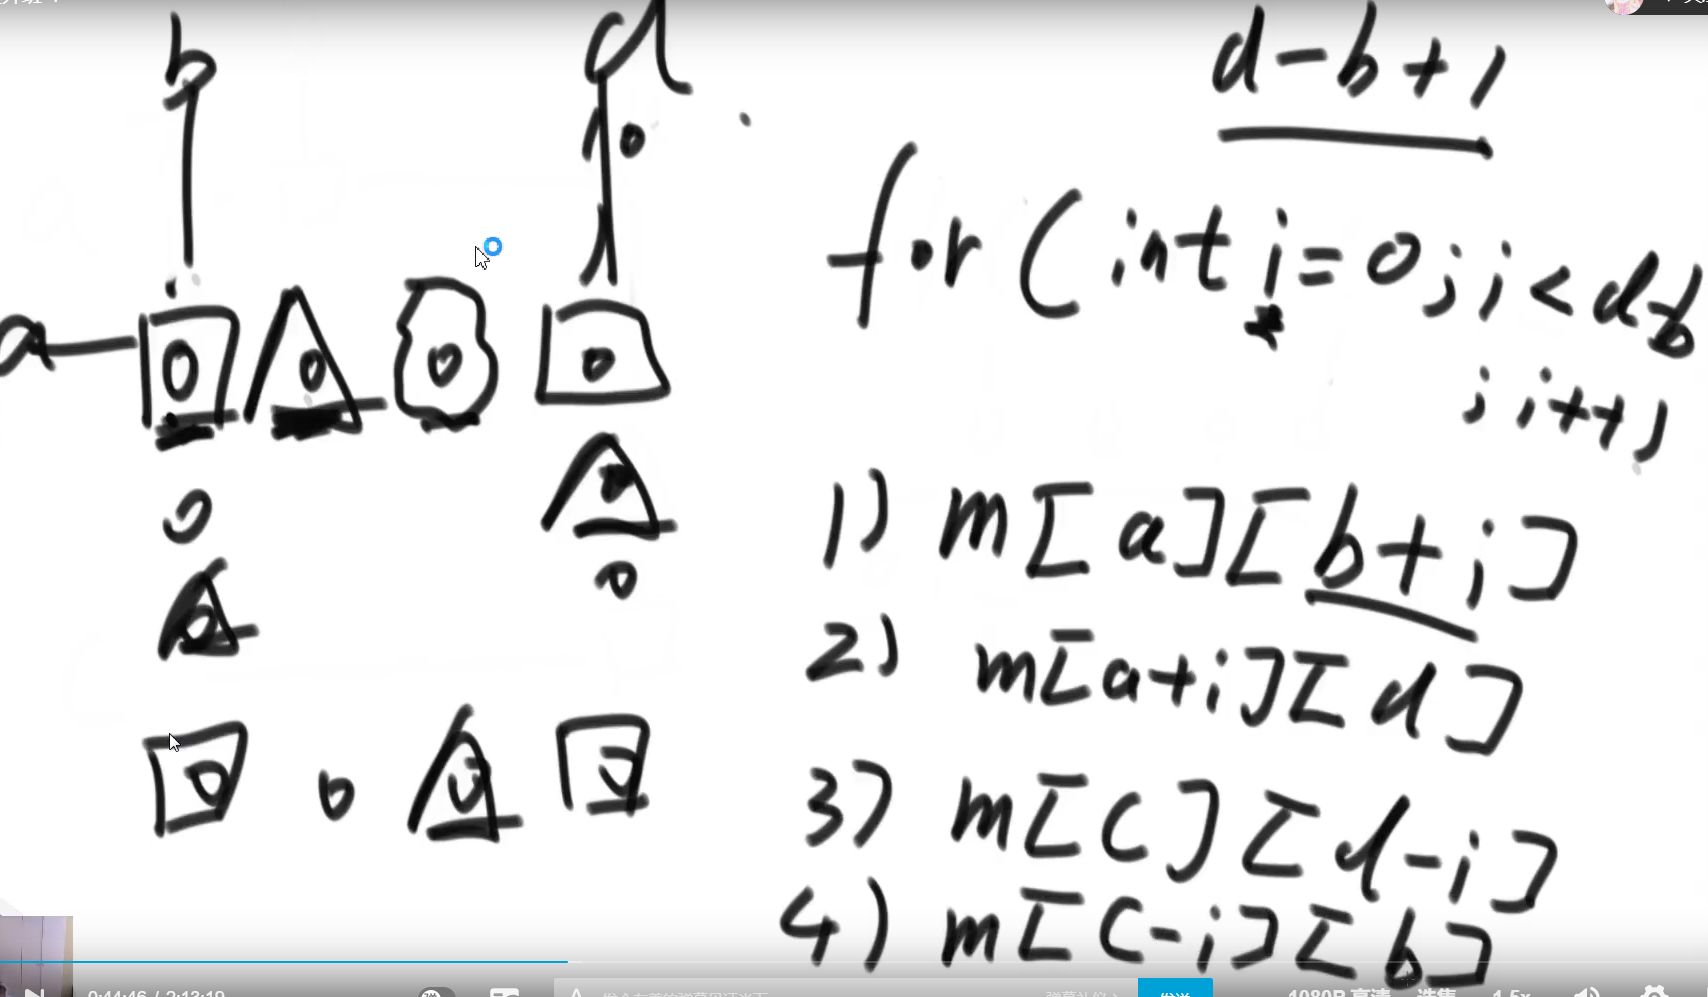 b
d
d-b+1
for (int i=0; i<d-b
; i++)
a
0 0 0 0
0 0
0
1) m[a][b+i]
2) m[a+i][d]
3) m[c][d-i]
4) m[c-i][b]
0:44:46 / 2:13:19
1080P 高清
选集
1.5x